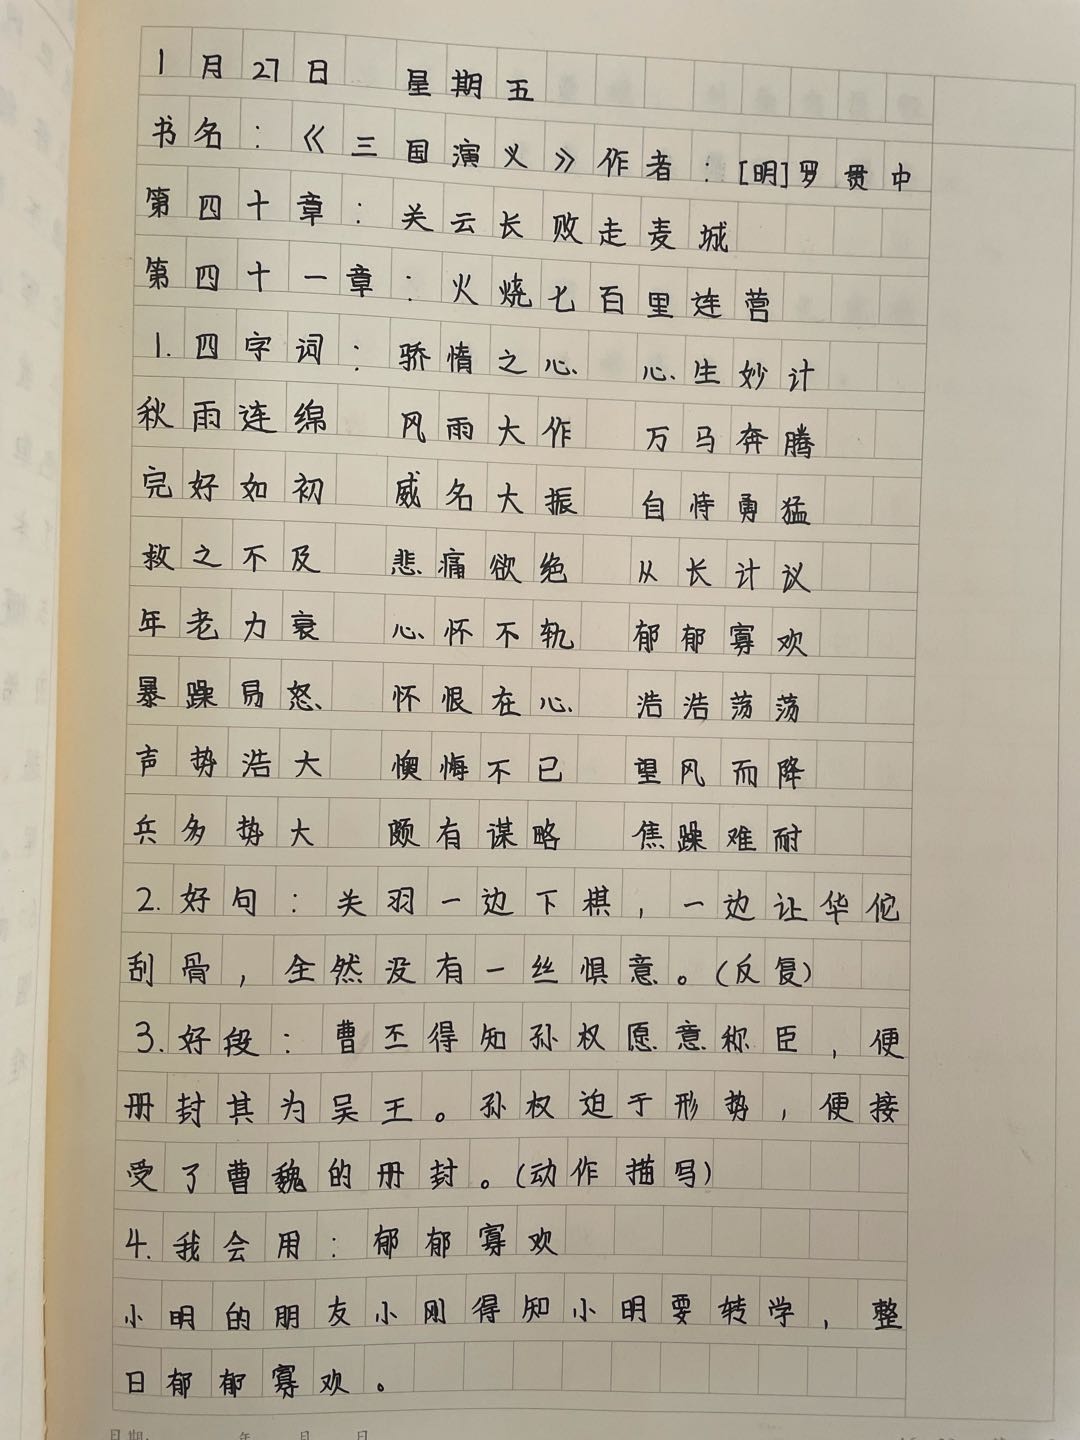 1月27日 星期五
书名：《三国演义》作者：[明]罗贯中
第四十章：关云长败走麦城
第四十一章：火烧七百里连营
1.四字词：骄惰之心 心生妙计
秋雨连绵 风雨大作 万马奔腾
完好如初 威名大振 自恃勇猛
救之不及 悲痛欲绝 从长计议
年老力衰 心怀不轨 郁郁寡欢
暴躁易怒 怀恨在心 浩浩荡荡
声势浩大 懊悔不已 望风而降
兵多势大 颇有谋略 焦躁难耐
2.好句：关羽一边下棋，一边让华佗
刮骨，全然没有一丝惧意。(反复)
3.好段：曹丕得知孙权愿意称臣，便
册封其为吴王。孙权迫于形势，便接
受了曹魏的册封。(动作描写)
4.我会用：郁郁寡欢
小明的朋友小刚得知小明要转学，整
日郁郁寡欢。
日期： 年 月 日